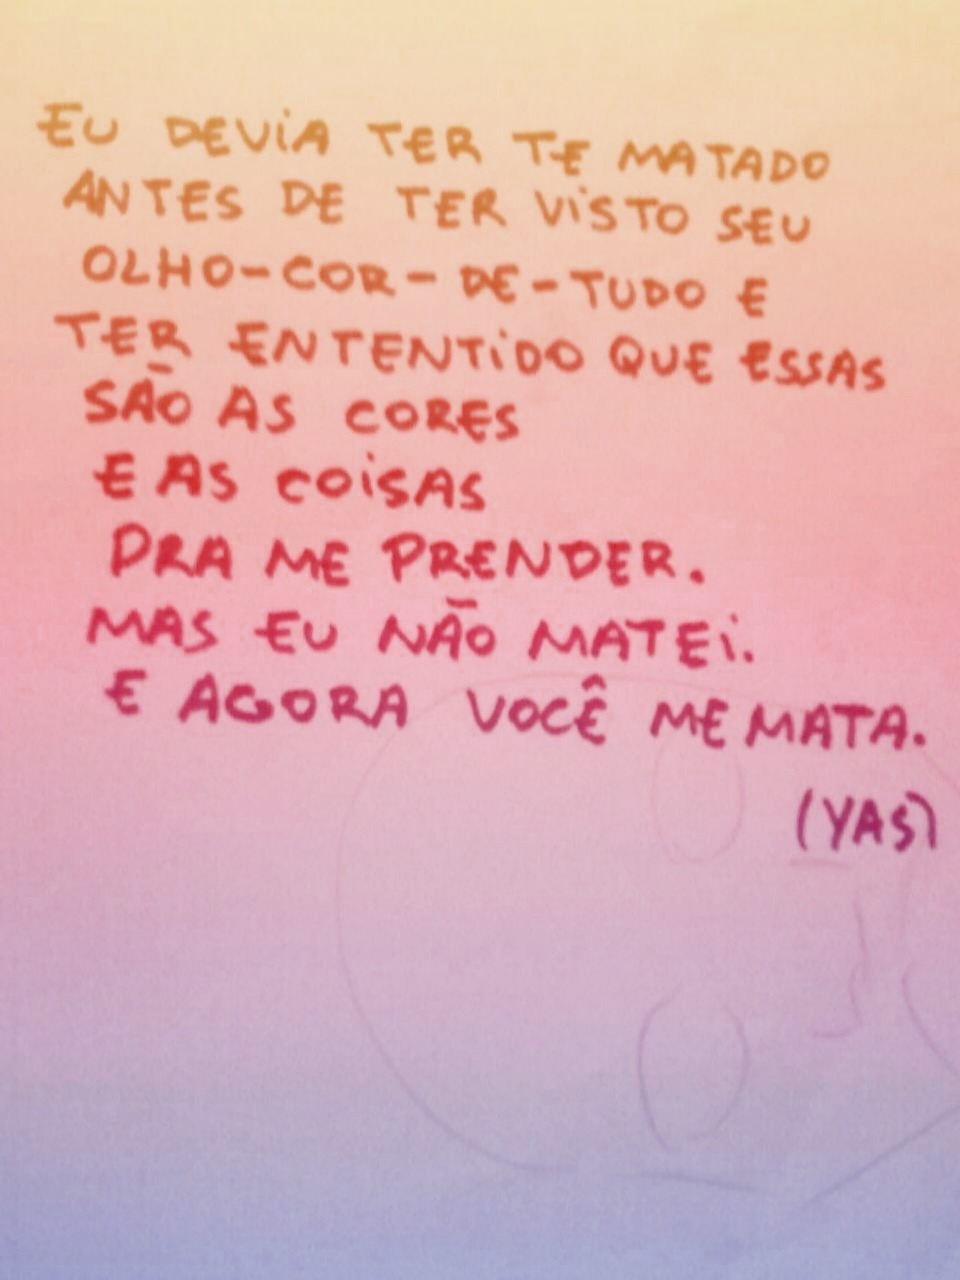 EU DEViA TER TE MATADO
ANTES DE TER ViSTO SEU
OLHO-COR-DE-TUDO E
TER ENTENTiDO QUE ESSAS
SÃO AS CORES
E AS COiSAS
PRA ME PRENDER.
MAS EU NÃO MATEi.
E AGORA VOCÊ ME MATA.
(YAS)